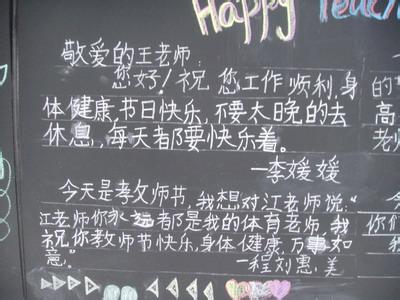 Happy Teac
敬爱的王老师:
您好!祝您工作顺利,身
体健康,节日快乐,不要太晚的去
休息,每天都要快乐着。
—李媛媛
今天是教师节,我想对江老师说:“
江老师你永远都是我的体育老师,我
祝你教师节快乐,身体健康,万事如
意。”
—程刘惠美
的
高
老师
今
你们